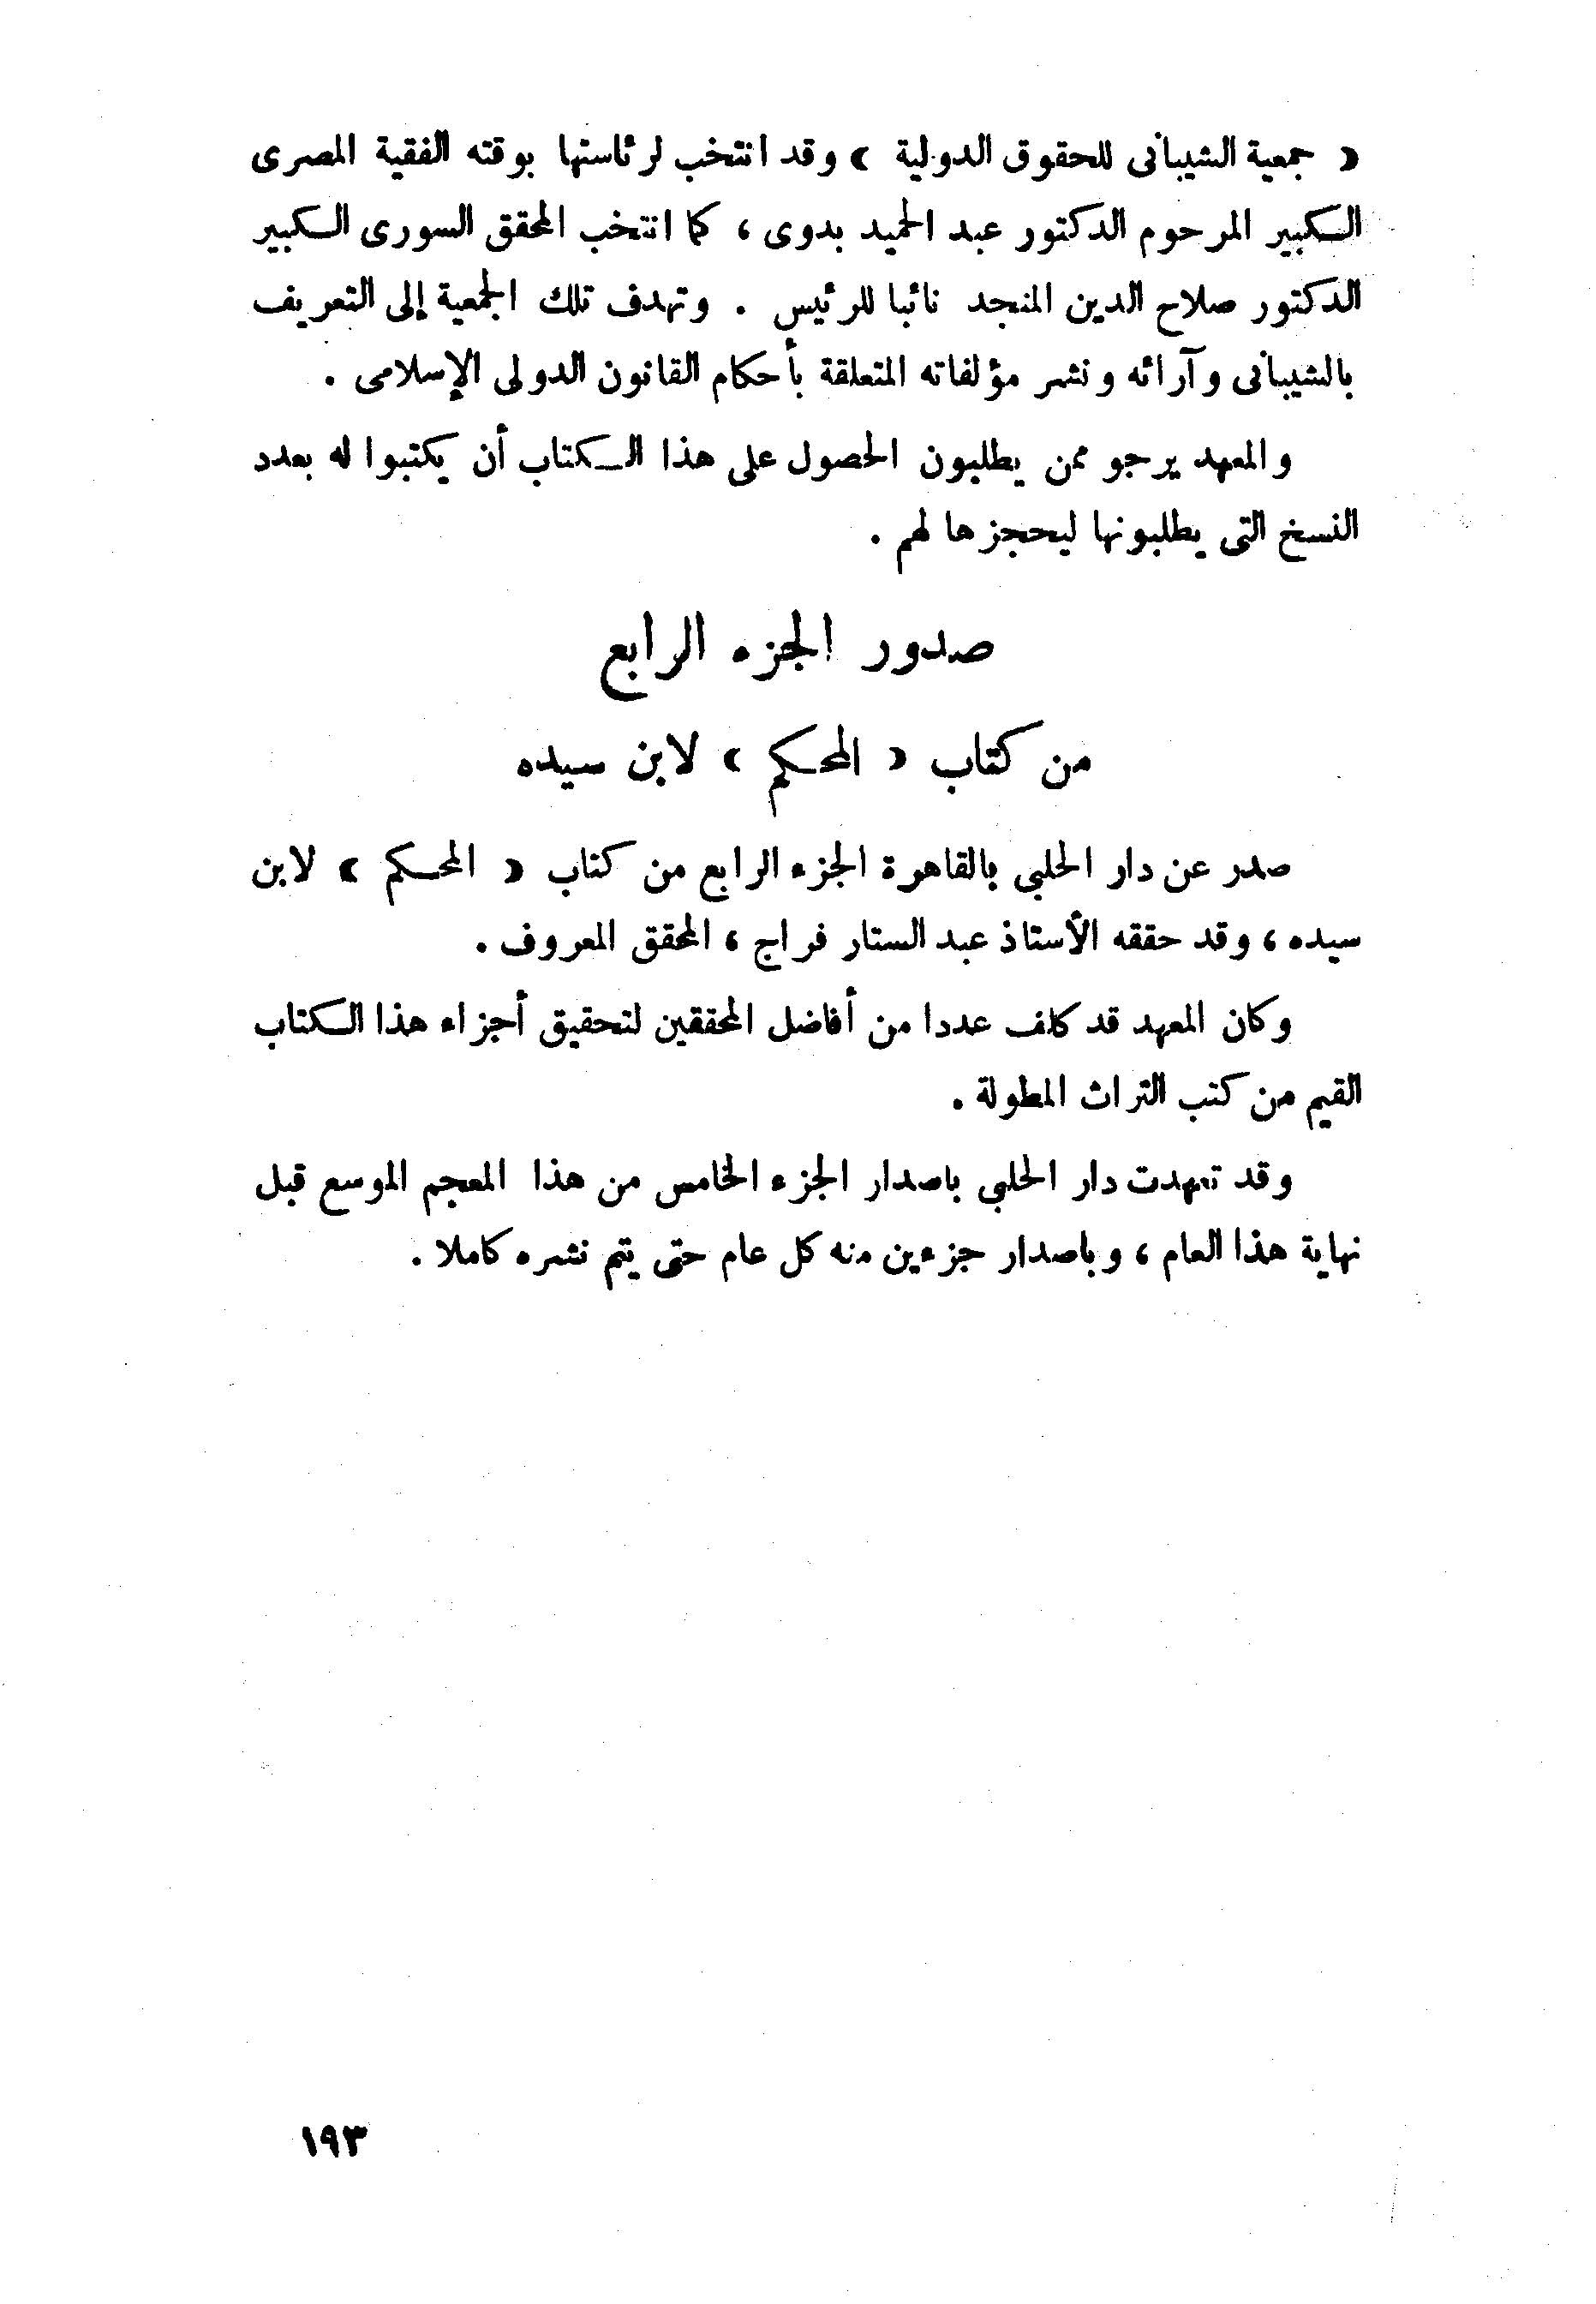 « جمعية الشيبانى للحقوق الدولية » وقد انتخب لرئاستها بوقته الفقية المصرى
الكبير المرحوم الدكتور عبد الحميد بدوى ، كما انتخب المحقق السورى الكبير
الدكتور صلاح الدين المنجد نائبا للرئيس . وتهدف تلك الجمعية إلى التعريف
بالشيبانى وآرائه ونشر مؤلفاته المتعلقة بأحكام القانون الدولى الإسلامى .
والمعهد يرجو ممن يطلبون الحصول على هذا الكتاب أن يكتبوا له بعدد
النسخ التى يطلبونها ليحجزها لهم .
صدور الجزء الرابع
من كتاب « المحكم » لابن سيده
صدر عن دار الحلبى بالقاهرة الجزء الرابع من كتاب « المحكم » لابن
سيده ، وقد حققه الأستاذ عبد الستار فراج ، المحقق المعروف .
وكان المعهد قد كلف عددا من أفاضل المحققين لتحقيق أجزاء هذا الكتاب
القيم من كتب التراث المطولة .
وقد تعهدت دار الحلبى باصدار الجزء الخامس من هذا المعجم الموسع قبل
نهاية هذا العام ، وباصدار جزءين منه كل عام حتى يتم نشره كاملا .
١٩٣